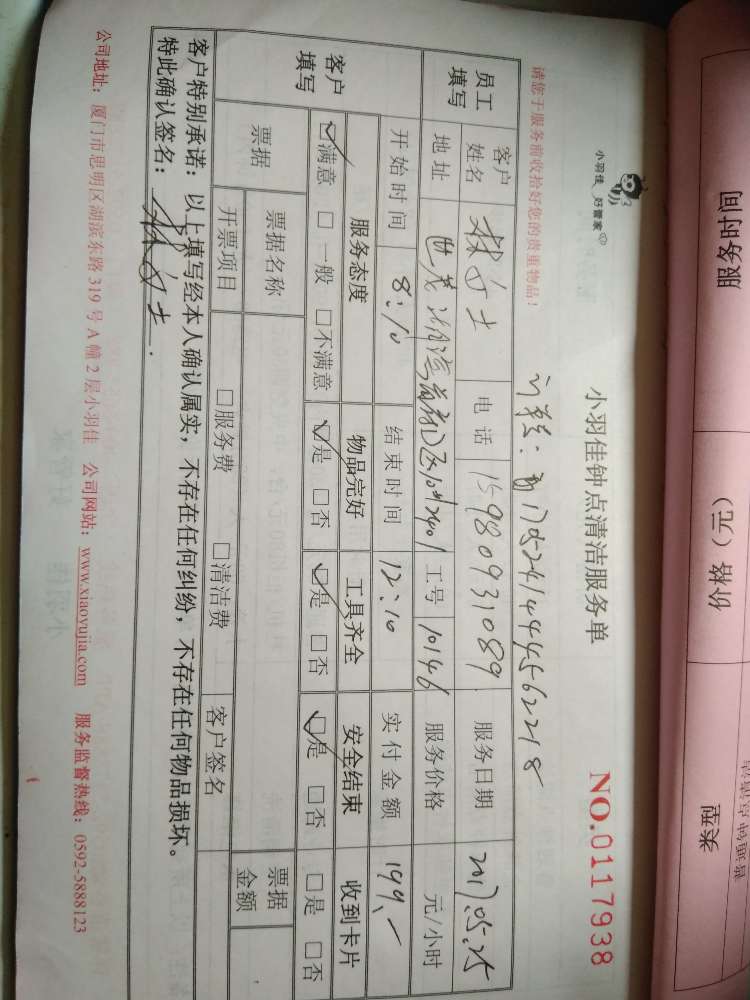 小羽佳 好管家
小羽佳钟点清洁服务单
NO.0117938
请您于服务前收拾好您的贵重物品!
员工填写
客户姓名 林女士 电话 15980931089 服务日期 2017.05.25
地址 工号 10146 服务价格 元/小时
开始时间 8:10 结束时间 12:10 实付金额 199.-
客户填写
服务态度 物品完好 工具齐全 安全结束 收到卡片
☑满意 □一般 □不满意 ☑是 □否 ☑是 □否 ☑是 □否 □是 □否
票据 票据名称 票据金额
开票项目 □服务费 □清洁费 客户签名
客户特别承诺:以上填写经本人确认属实,不存在任何纠纷,不存在任何物品损坏。
特此确认签名:林女士.
公司地址:厦门市思明区湖滨东路319号A幢2层小羽佳 公司网站:www.xiaoyujia.com 服务监督热线:0592-5888123
服务时间 价格(元) 类型